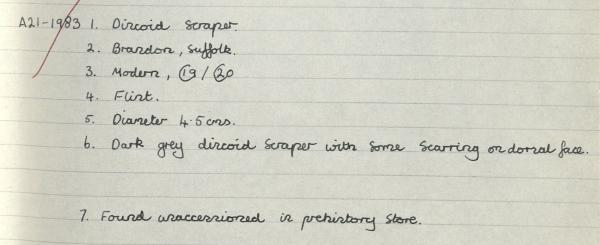 A21-1983 1. Discoid scraper.
2. Brandon, Suffolk.
3. Modern, 19 / 20
4. Flint.
5. Diameter 4.5 cms.
6. Dark grey discoid scraper with some scarring on dorsal face.
7. Found unaccessioned in prehistory store.